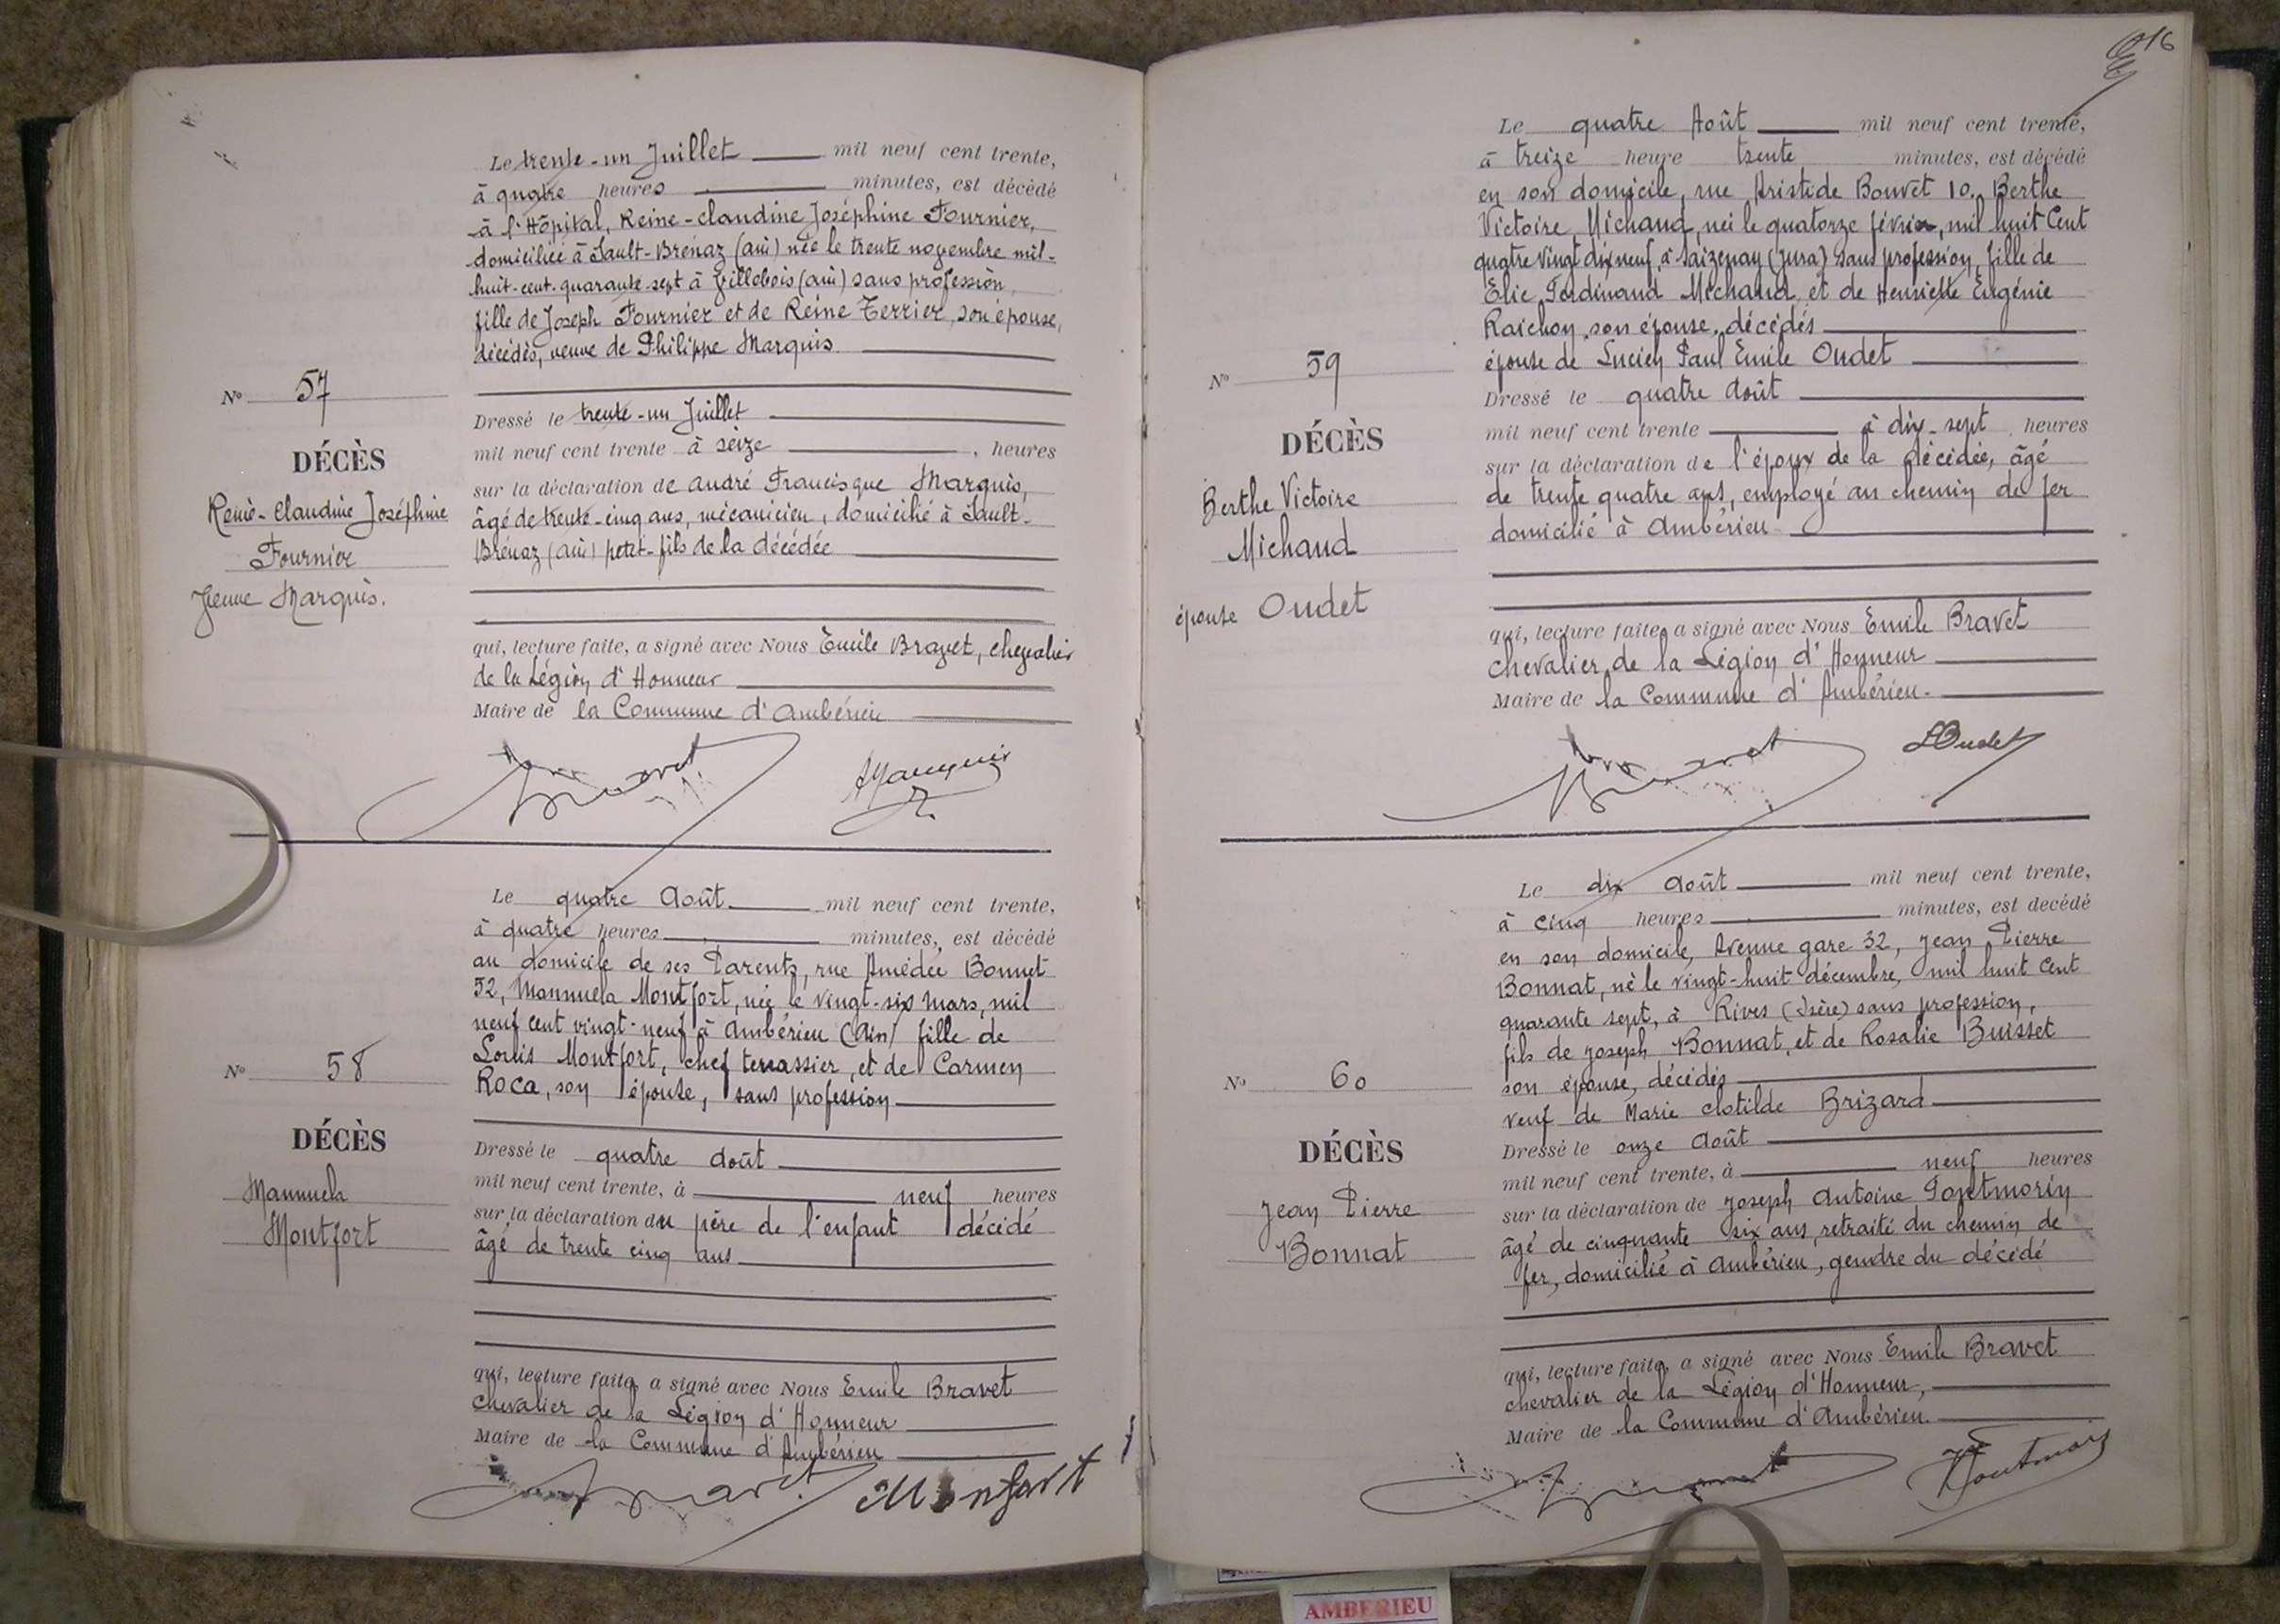 Le trente-un Juillet mil neuf cent trente,
à quatre heures minutes, est décédé
à l'Hôpital, Reine-Claudine Joséphine Fournier,
domiciliée à Sault-Brénaz (ain) née le trente novembre mil-
huit-cent-quarante-sept à Villebois (ain) sans profession,
fille de Joseph Fournier et de Reine Terrier, son épouse,
décédés, veuve de Philippe Marquis.
N° 57
DÉCÈS
Reine-Claudine Joséphine
Fournier
Veuve Marquis.
Dressé le trente-un Juillet
mil neuf cent trente à seize, heures
sur la déclaration de andré Francisque Marquis,
âgé de trente-cinq ans, mécanicien, domicilié à Sault-
Brénaz (ain) petit-fils de la décédée
qui, lecture faite, a signé avec Nous Emile Bravet, chevalier
de la Légion d'Honneur
Maire de la Commune d'Ambérieu
Bravet Marquis
Le quatre Août mil neuf cent trente,
à quatre heures minutes, est décédé
au domicile de ses Parents, rue Amédée Bonnet
52, Mannuela Montfort, née le vingt-six mars, mil
neuf cent vingt-neuf à Ambérieu (Ain) fille de
Louis Montfort, chef terrassier, et de Carmen
Roca, son épouse, sans profession
N° 58
DÉCÈS
Mannuela
Montfort
Dressé le quatre Août
mil neuf cent trente, à neuf heures
sur la déclaration du père de l'enfant décédé
âgé de trente cinq ans
qui, lecture faite, a signé avec Nous Emile Bravet
chevalier de la Légion d'Honneur
Maire de la Commune d'Ambérieu
Bravet Monfortt
16
Le quatre Août mil neuf cent trente,
à treize heure trente minutes, est décédé
en son domicile, rue Aristide Bouvet 10. Berthe
Victoire, Michaud, née le quatorze février, mil huit Cent
quatre vingt dix neuf, à Saizenay (Jura) sans profession, fille de
Elie Ferdinand Michaud, et de Henriette Eugénie
Raichon, son épouse, décédés
épouse de Lucien Paul Emile Oudet
N° 59
DÉCÈS
Berthe Victoire
Michaud
épouse Oudet
Dressé le quatre Août
mil neuf cent trente à dix-sept heures
sur la déclaration de l'époux de la décédée, âgé
de trente quatre ans, employé au chemin de fer
domicilié à Ambérieu
qui, lecture faite, a signé avec Nous Emile Bravet
chevalier, de la Légion d'Honneur
Maire de la Commune d'Ambérieu.
Bravet LOudet
Le dix Août mil neuf cent trente,
à cinq heures minutes, est decédé
en son domicile, Avenue gare 32, Jean Pierre
Bonnat, né le vingt-huit décembre, mil huit Cent
quarante sept, à Rives (Isère) sans profession,
fils de Joseph Bonnat, et de Rosalie Buisset
son épouse, décédés
veuf de Marie Clotilde Brizard
N° 60
DÉCÈS
Jean Pierre
Bonnat
Dressé le onze Août
mil neuf cent trente, à neuf heures
sur la déclaration de Joseph Antoine Pontmorin
âgé de cinquante six ans, retraité du chemin de
fer, domicilié à Ambérieu, gendre du décédé
qui, lecture faite, a signé avec Nous Emile Bravet
chevalier de la Légion d'Honneur,
Maire de la Commune d'Ambérieu.
Bravet
AMBERIEU